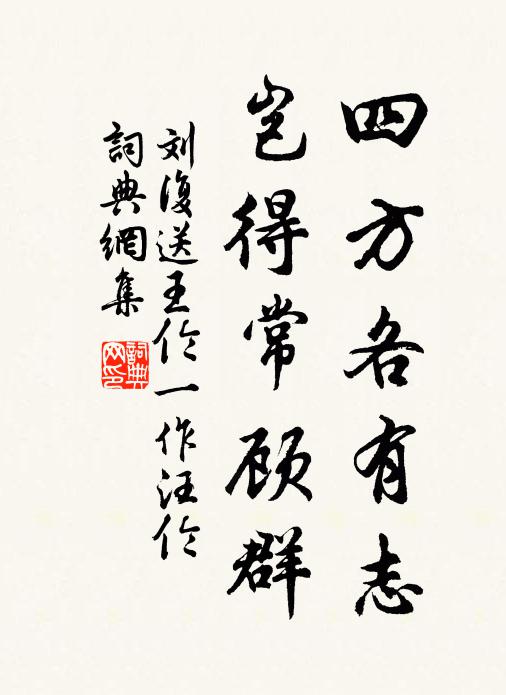 四方各有志
岂得常顾群
刘復送王伦一作汪伦
詞典網集
詞典
网印